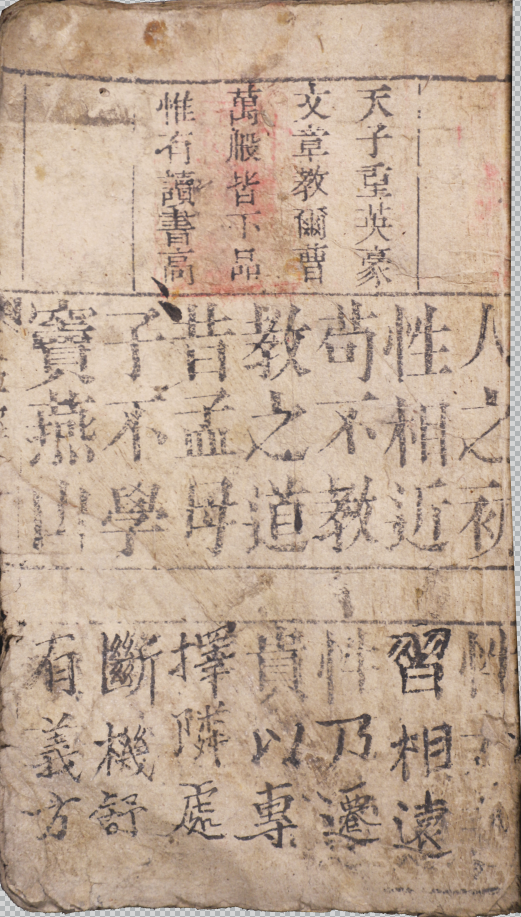 天子重英豪
文章教爾曹
萬般皆下品
惟有讀書高
人之初
性
性相近
習相遠
苟不教
性乃遷
教之道
貴以專
昔孟母
擇隣處
子不學
斷機舒
竇燕山
有義方